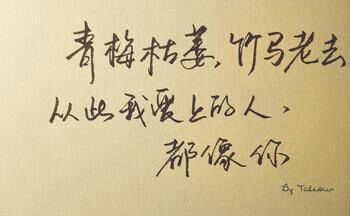 青梅枯萎,竹马老去
从此我爱上的人、
都像你
By